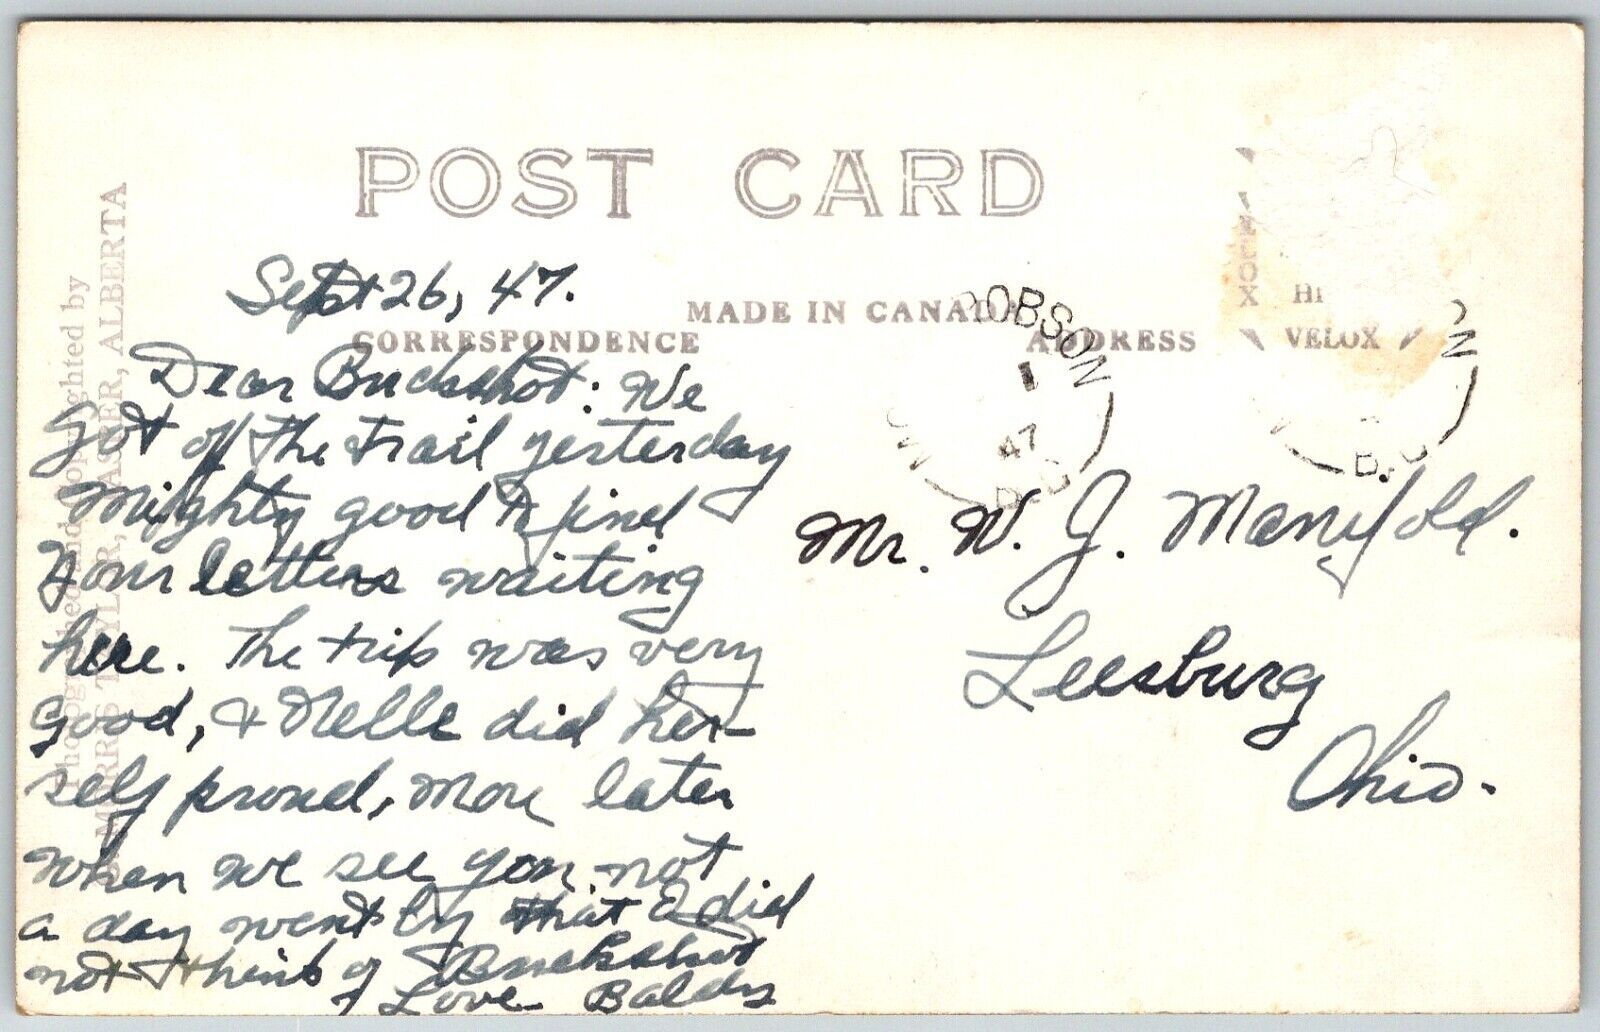 POST CARD
Sept 26, 47.
MADE IN CANADA
CORRESPONDENCE
ADDRESS
Dear Buckshot: We
got off the trail yesterday
Mighty good to find
Your letters waiting
here. The trip was very
good, & Nelle did her-
self proud, More later
when we see you. not
a day went by that I did
not think of Buckshot
Love Baldy
Mr. W. J. Manifold.
Leesburg
Ohio.
Photographed and copyrighted by
TAYLOR, JASPER, ALBERTA
OBSON
47
B.C
VELOX